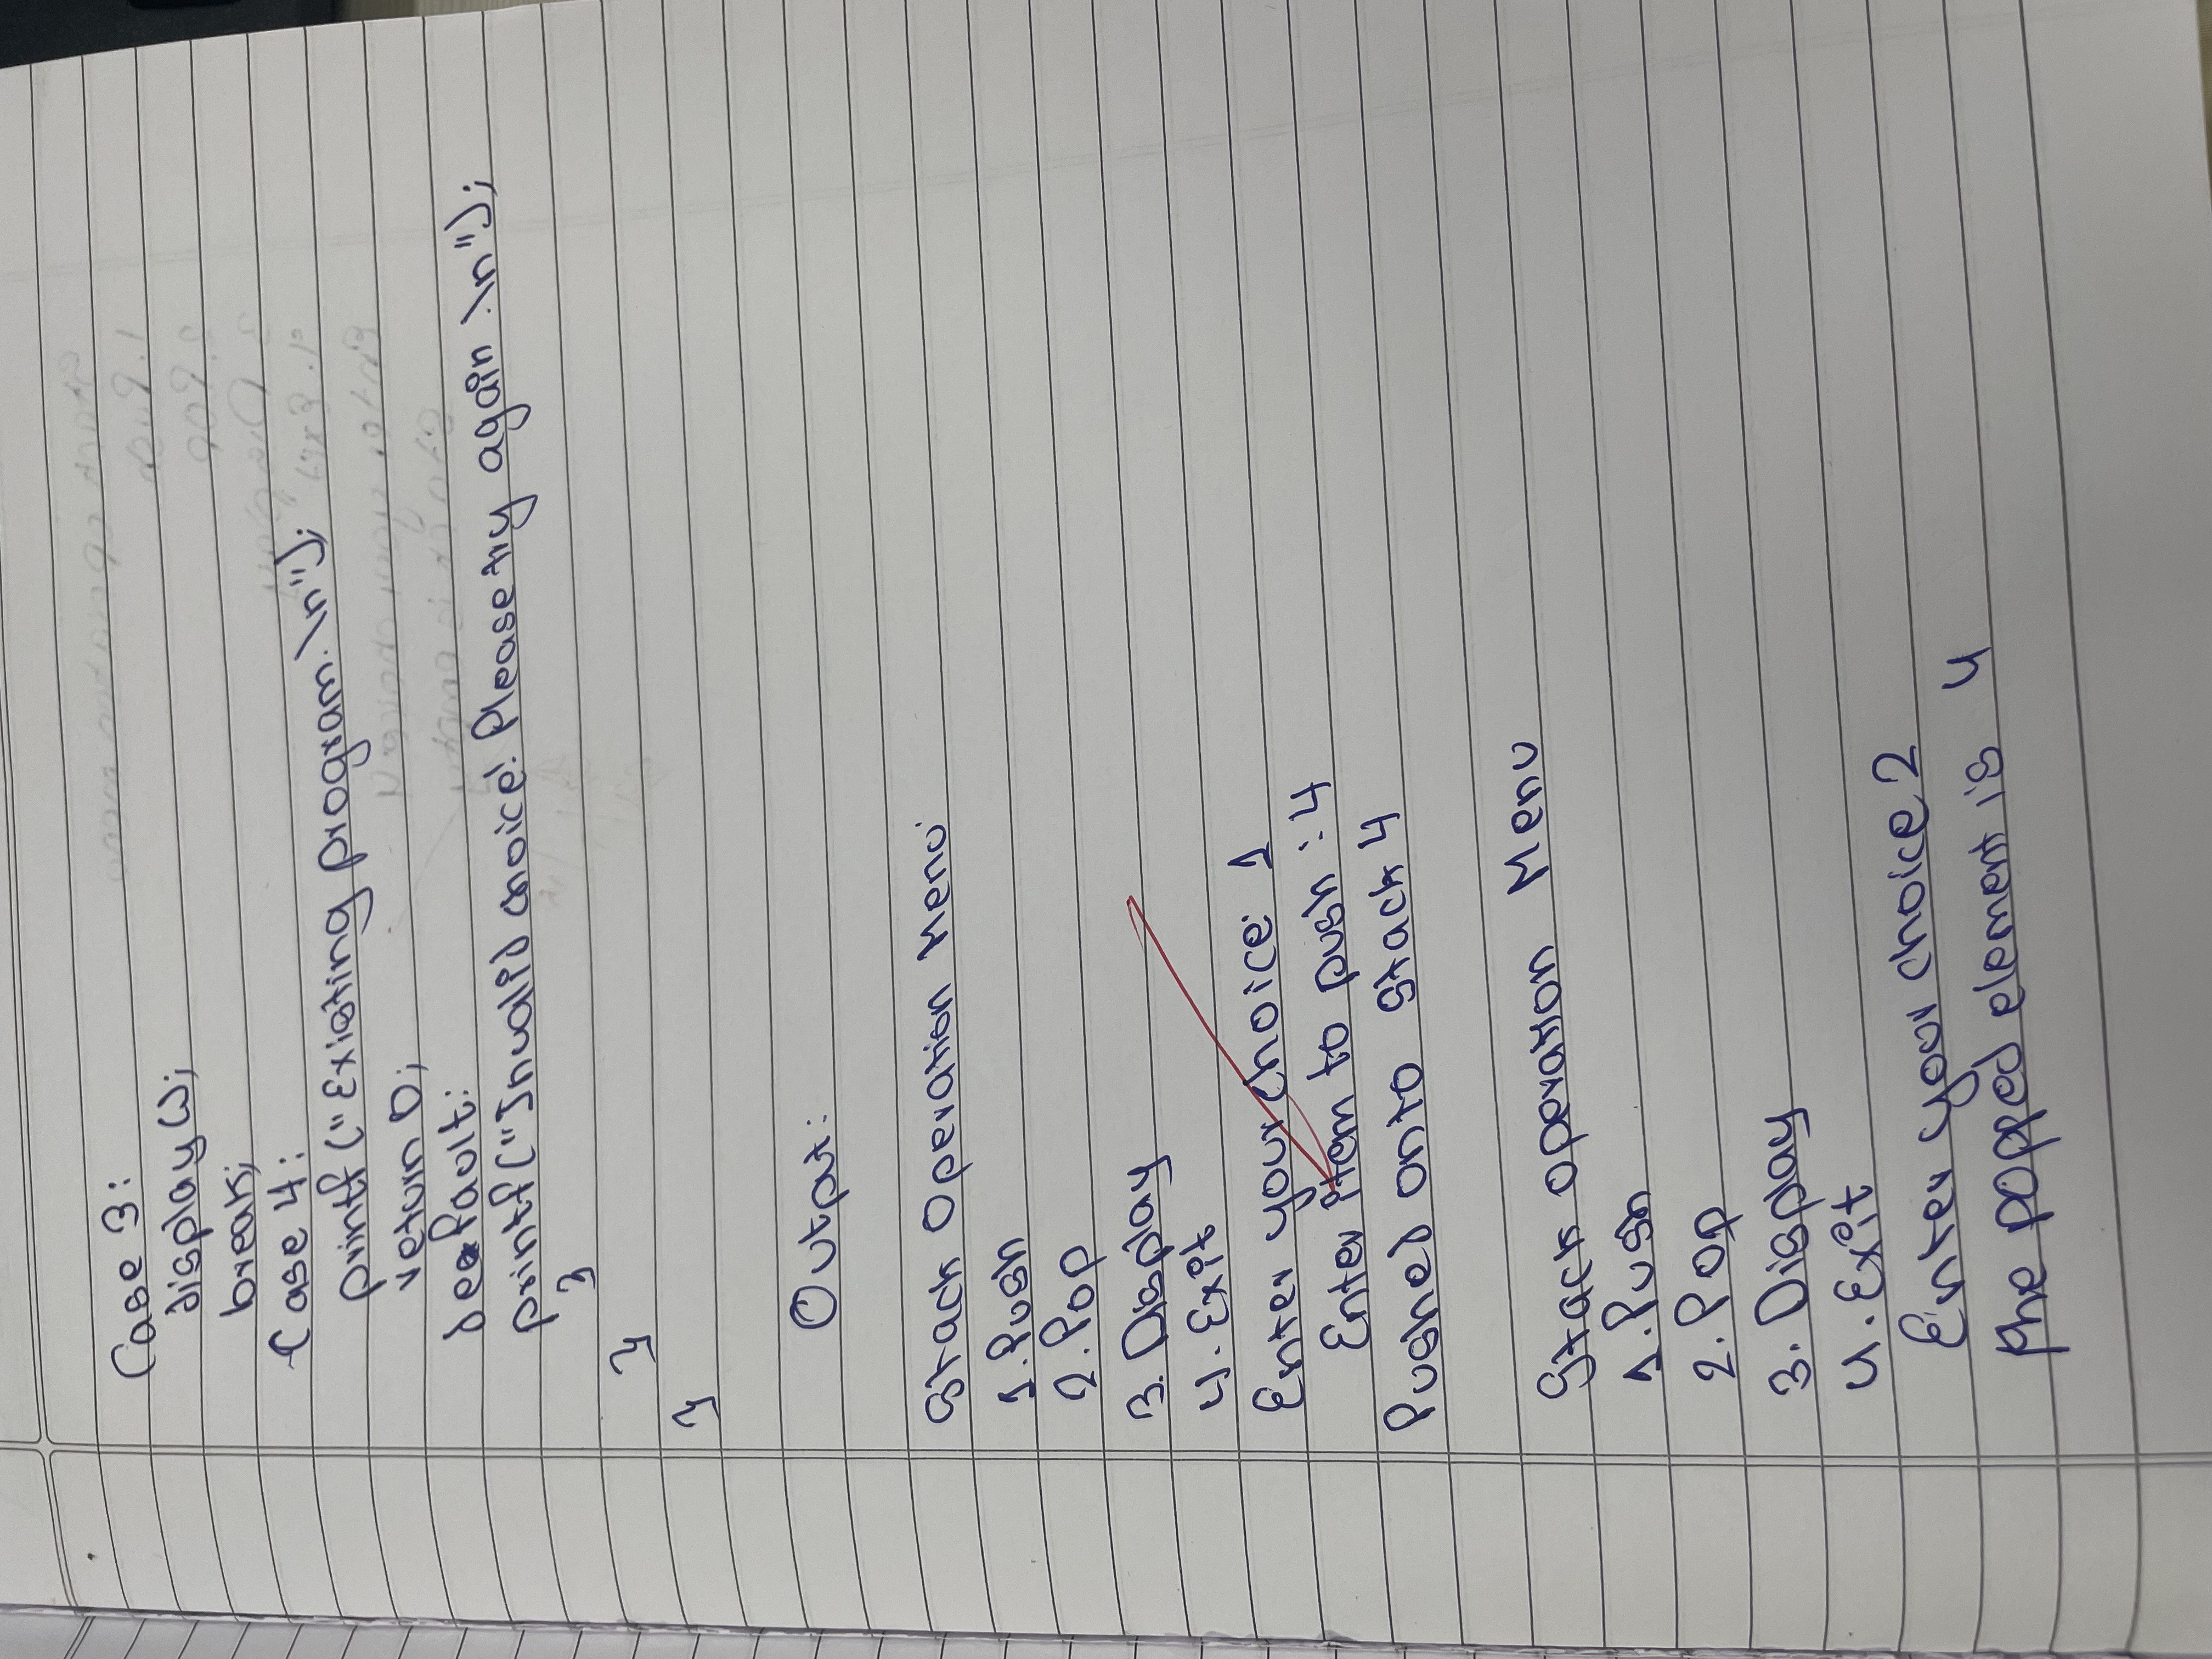 Case 3:
display();
break;
Case 4:
printf ("Existing program. \n");
return 0;
default:
printf ("Invalid choice! Please try again .\n");
}
}
}
Output:
Stack Operation Menu
1. Push
2. Pop
3. Display
4. Exit
Enter your choice: 1
Enter item to push : 4
Pushed onto Stack 4
Stack operation Menu
1. Push
2. Pop
3. Display
4. Exit
Enter your choice 2
the popped element is 4